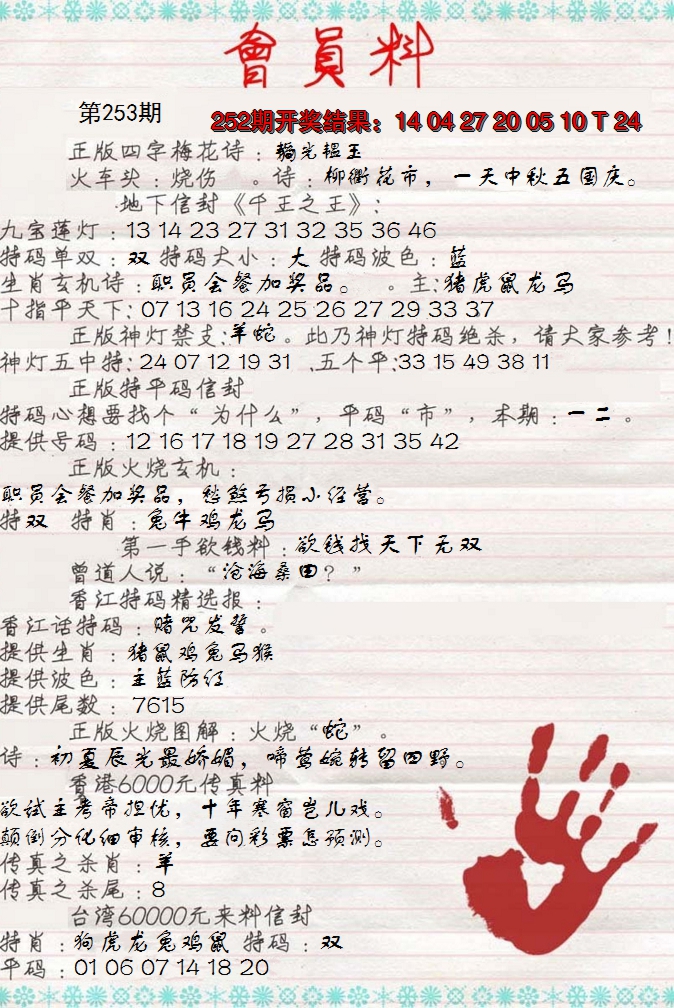 會員料
第253期
252期开奖结果：14 04 27 20 05 10 T 24
正版四字梅花诗：韬光韫玉
火车头：烧伤 。诗：柳衢花市，一天中秋五国庆。
.地下信封《千王之王》：
九宝莲灯：13 14 23 27 31 32 35 36 46
特码单双：双 特码大小：大 特码波色：蓝
生肖玄机诗：职员会餐加奖品。 。主:猪虎鼠龙马
十指平天下：07 13 16 24 25 26 27 29 33 37
正版神灯禁支:羊蛇。此乃神灯特码绝杀，请大家参考！
神灯五中特:24 07 12 19 31 .五个平:33 15 49 38 11
正版特平码信封
特码心想要找个“为什么”，平码“市”，本期：一二。
提供号码：12 16 17 18 19 27 28 31 35 42
正版火烧玄机：
职员会餐加奖品，愁煞亏损小经营。
特双 特肖：兔牛鸡龙马
第一手欲钱料：欲钱找天下无双
曾道人说：“沧海桑田？”
香江特码精选报：
香江话特码：赌咒发誓。
提供生肖：猪鼠鸡兔马猴
提供波色：主蓝防红
提供尾数：7615
正版火烧图解：火烧“蛇”。
诗：初夏辰光最娇媚，啼莺婉转留四野。
香港6000元传真料
欲试主考帝担忧，十年寒窗岂儿戏。
颠倒分化细审核，要问彩票怎预测。
传真之杀肖：羊
传真之杀尾：8
台湾60000元来料信封
特肖：狗虎龙兔鸡鼠 特码：双
平码：01 06 07 14 18 20